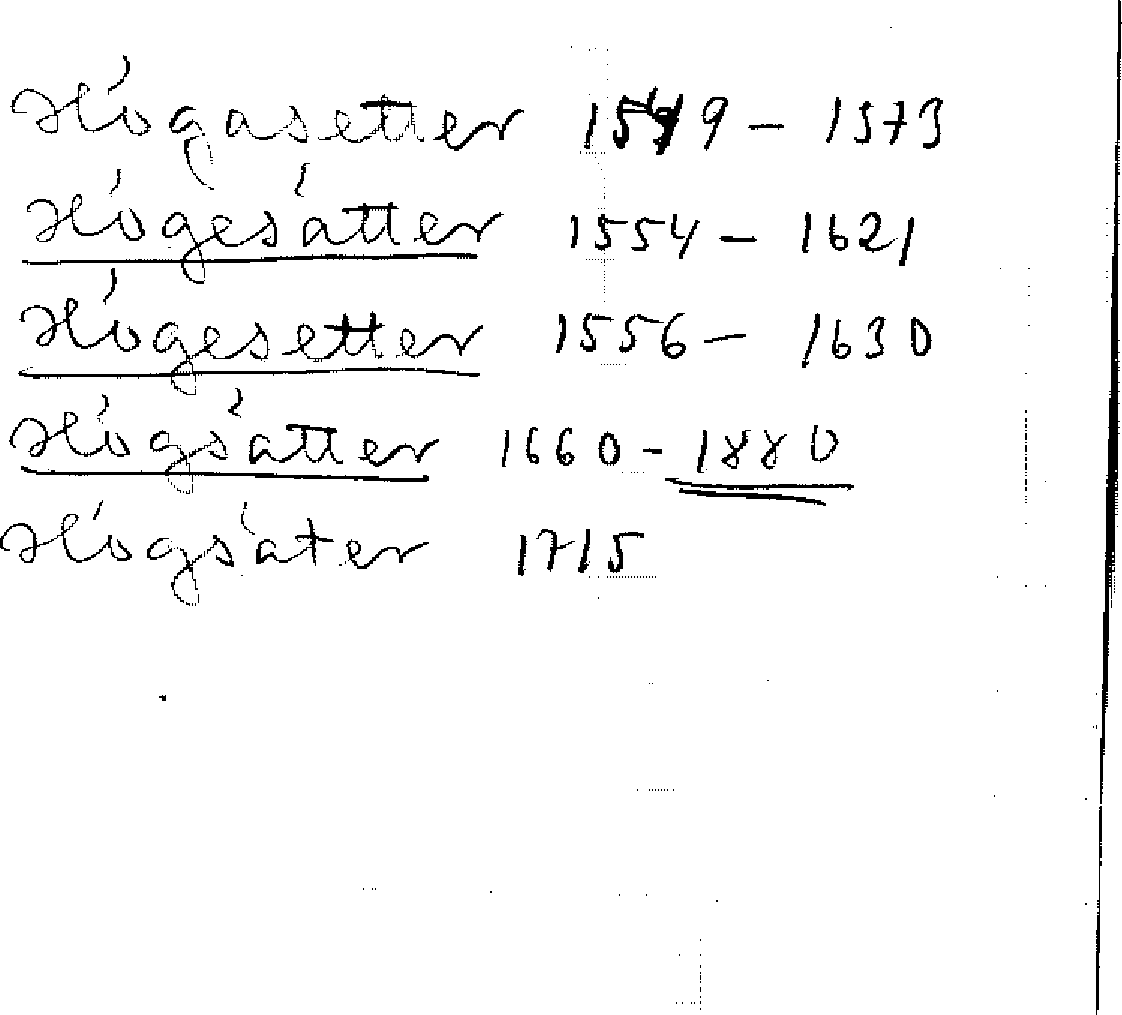 Högasetter 1549 – 1573
Högesätter 1554 – 1621
Högesetter 1556 – 1630
Högsätter 1660 – 1880
Högsäter 1715